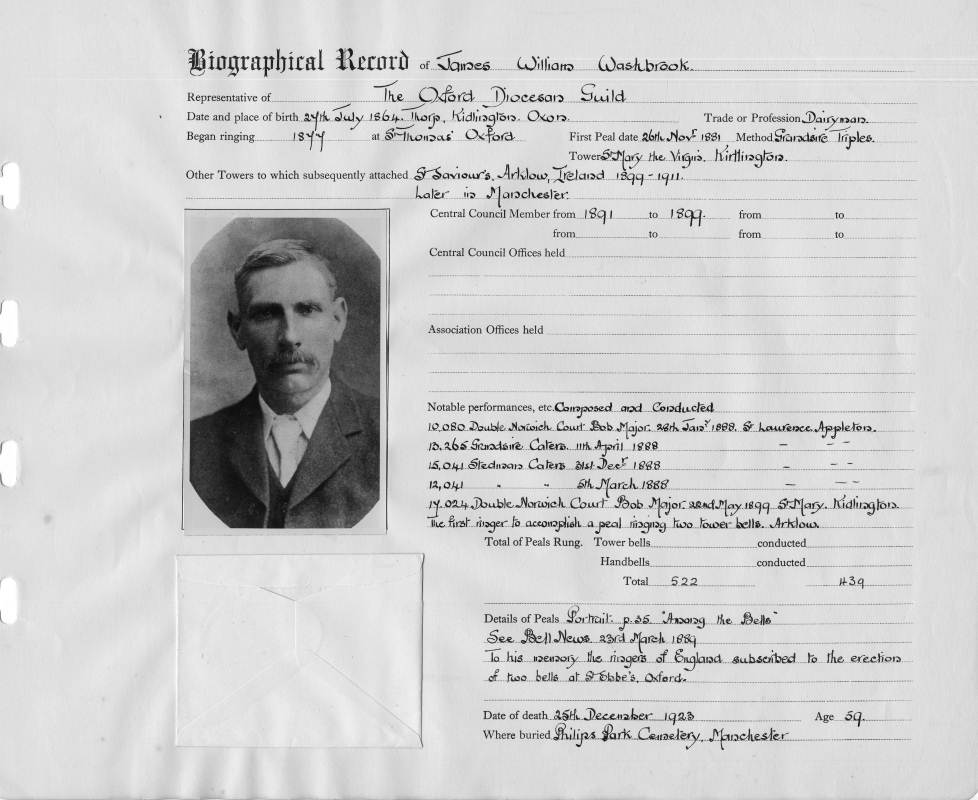 Biographical Record of James William Washbrook.
Representative of The Oxford Diocesan Guild
Date and place of birth 27th July 1864. Thorp, Kidlington. Oxon. Trade or Profession Dairyman.
Began ringing 1877 at St Thomas' Oxford First Peal date 26th Novr 1881 Method Grandsire Triples.
Tower St Mary the Virgin. Kirtlington.
Other Towers to which subsequently attached St Saviour's, Arklow, Ireland 1899-1911.
Later in Manchester.
Central Council Member from 1891 to 1899. from to
from to from to
Central Council Offices held
Association Offices held
Notable performances, etc. Composed and Conducted
10,080 Double Norwich Court Bob Major. 28th Jany 1888. St Laurence. Appleton.
13,265 Grandsire Caters. 11th April 1888 - - -
15,041 Stedman Caters 31st Decr 1888 - - -
12,041 " " 5th March 1888 - - -
17,024 Double Norwich Court Bob Major. 22nd May 1899 St Mary. Kidlington.
The first ringer to accomplish a peal ringing two tower bells. Arklow.
Total of Peals Rung. Tower bells conducted
Handbells conducted
Total 522 439
Details of Peals Portrait: p.35 "Among the Bells"
See Bell News. 23rd March 1889
To his memory the ringers of England subscribed to the erection
of two bells at St Ebbe's, Oxford.
Date of death 25th December 1923 Age 59.
Where buried Philips Park Cemetery, Manchester